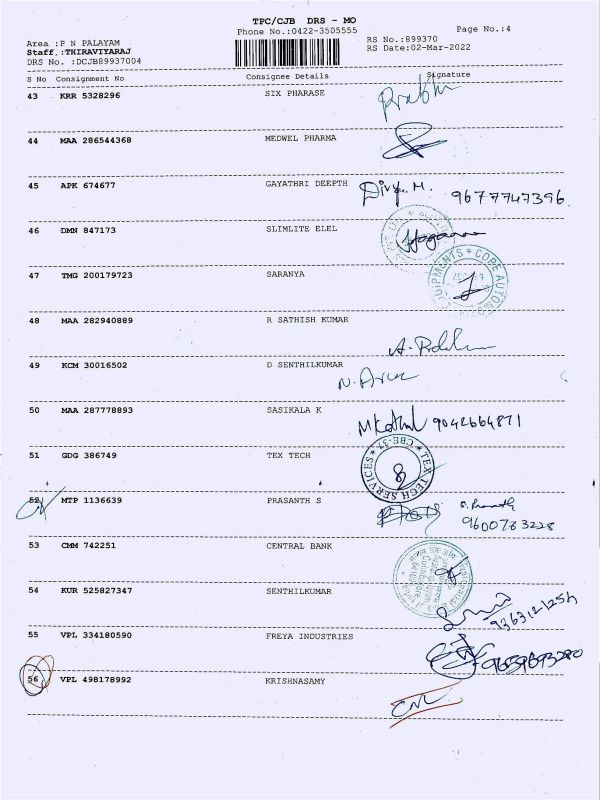 TPC/CJB DRS - MO
Phone No.:0422-3505555
Page No.:4
RS No.:899370
RS Date:02-Mar-2022
Area :P N PALAYAM
Staff.:THIRAVIYARAJ
DRS No. :DCJB89937004
S No Consignment No Consignee Details Signature
43 KRR 5328296 SIX PHARASE
Prabhu
44 MAA 286544368 MEDWEL PHARMA
45 APK 674677 GAYATHRI DEEPTH
Divya. M. 9677747396
46 DMN 847173 SLIMLITE ELEL
47 TMG 200179723 SARANYA
48 MAA 282940889 R SATHISH KUMAR
49 KCM 30016502 D SENTHILKUMAR
50 MAA 287778893 SASIKALA K
9042664871
51 GDG 386749 TEX TECH
TEX TECH SERVICES CBE-37
52 MTP 1136639 PRASANTH S
9600763228
53 CMM 742251 CENTRAL BANK
54 KUR 525827347 SENTHILKUMAR
55 VPL 334180590 FREYA INDUSTRIES
56 VPL 498178992 KRISHNASAMY